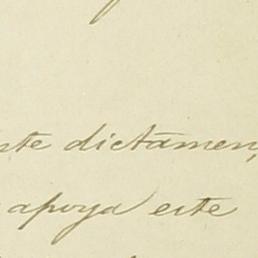 ste dictámen,
apoya este